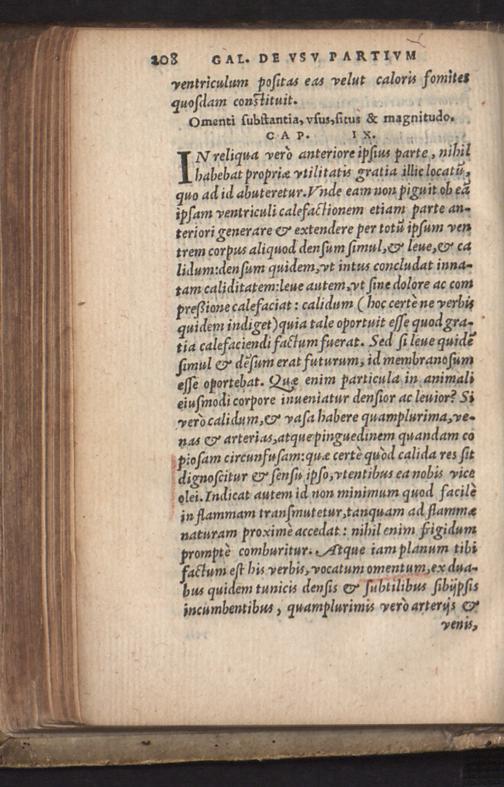 208 GAL. DE VSV PARTIVM
ventriculum positas eas velut caloris fomites
quosdam constituit.
Omenti substantia, vsus, situs & magnitudo.
CAP. IX.
IN reliqua verò anteriore ipsius parte, nihil
habebat propriæ vtilitatis gratia illic locatũ,
quo ad id abuteretur. Vnde eam non piguit ob eã
ipsam ventriculi calefactionem etiam parte an-
teriori generare & extendere per totũ ipsum ven
trem corpus aliquod densum simul, & leue, & ca
lidum: densum quidem, vt intus concludat inna-
tam caliditatem: leue autem, vt sine dolore ac com
pressione calefaciat: calidum (hoc certè ne verbis
quidem indiget) quia tale oportuit esse quod gra-
tia calefaciendi factum fuerat. Sed si leue quidẽ
simul & dẽsum erat futurum, id membranosum
esse oportebat. Quæ enim particula in animali
eiusmodi corpore inueniatur densior ac leuior? Si
verò calidum, & vasa habere quamplurima, ve-
nas & arterias, atque pinguedinem quandam co
piosam circunfusam: quæ certè quòd calida res sit
dignoscitur & sensu ipso, vtentibus ea nobis vice
olei. Indicat autem id non minimum quod facilè
in flammam transmutetur, tanquam ad flammæ
naturam proximè accedat: nihil enim frigidum
promptè comburitur. Atque iam planum tibi
factum est his verbis, vocatum omentum, ex dua-
bus quidem tunicis densis & subtilibus sibijpsis
incumbentibus, quamplurimis verò arterijs &
venis,